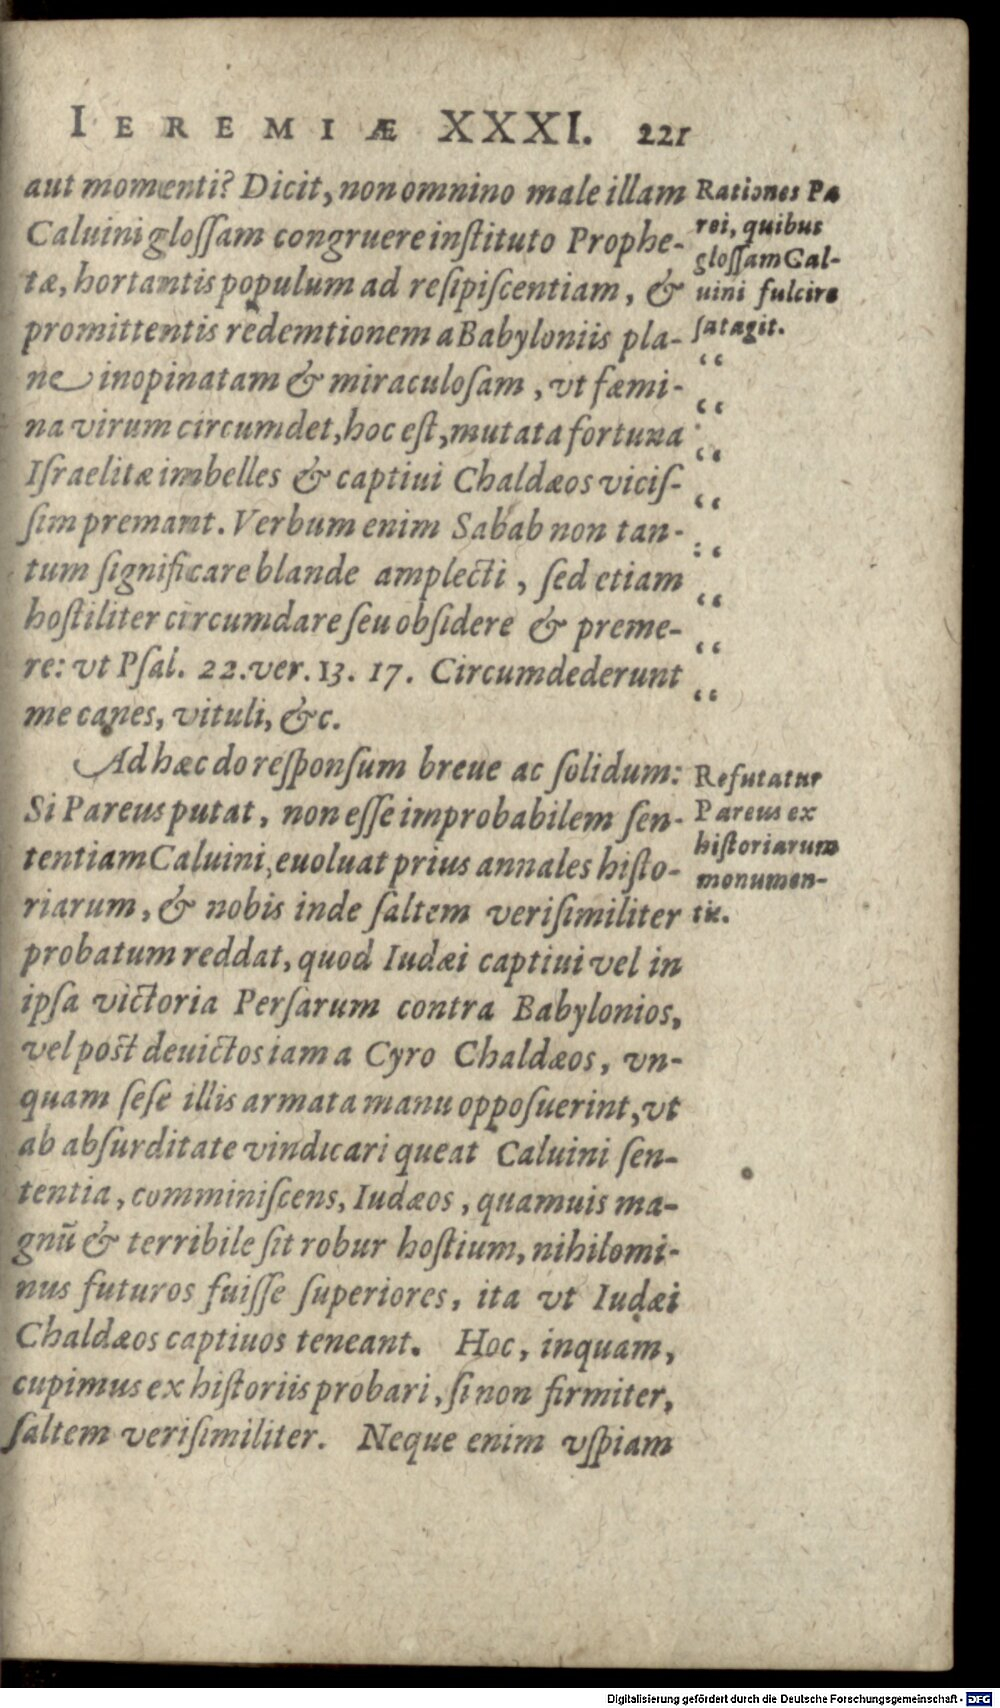 IEREMIÆ XXXI. 221
aut momenti? Dicit, non omnino male illam
Caluini gloſſam congruere inſtituto Prophe-
tæ, hortantis populum ad reſipiſcentiam, &
promittentis redemtionem a Babyloniis pla-
ne inopinatam & miraculoſam, vt fæmi-
na virum circumdet, hoc eſt, mutata fortuna
Iſraelitæ imbelles & captiui Chaldæos viciſ-
ſim premant. Verbum enim Sabab non tan-
tum ſignificare blande amplecti, ſed etiam
hoſtiliter circumdare ſeu obſidere & preme-
re: vt Pſal. 22. ver. 13. 17. Circumdederunt
me canes, vituli, &c.
Rationes Pa
rei, quibus
gloſſam Cal-
uini fulcire
ſatagit.
“
“
“
“
“
“
“
“
Ad hæc do reſponſum breue ac ſolidum:
Si Pareus putat, non eſſe improbabilem ſen-
tentiam Caluini, euoluat prius annales hiſto-
riarum, & nobis inde ſaltem veriſimiliter
probatum reddat, quod Iudæi captiui vel in
ipſa victoria Perſarum contra Babylonios,
vel poſt deuictos iam a Cyro Chaldæos, vn-
quam ſeſe illis armata manu oppoſuerint, vt
ab abſurditate vindicari queat Caluini ſen-
tentia, comminiſcens, Iudæos, quamuis ma-
gnū & terribile ſit robur hoſtium, nihilomi-
nus futuros fuiſſe ſuperiores, ita vt Iudæi
Chaldæos captiuos teneant. Hoc, inquam,
cupimus ex hiſtoriis probari, ſi non firmiter,
ſaltem veriſimiliter. Neque enim vſpiam
Refutatur
Pareus ex
hiſtoriarum
monumen-
tis.
Digitalisierung gefördert durch die Deutsche Forschungsgemeinschaft - DFG